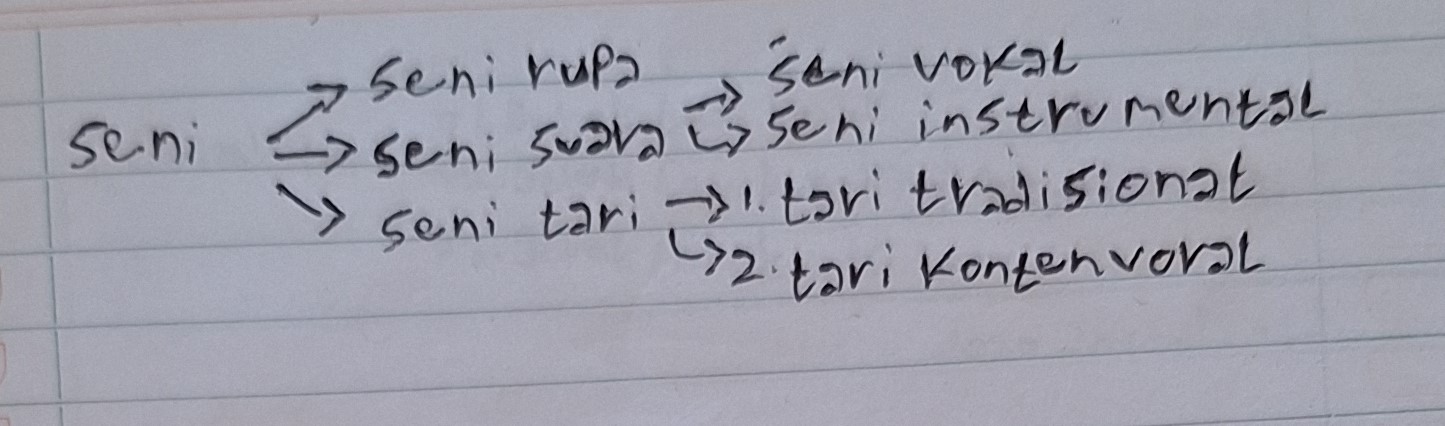 seni rupa → seni vokal
seni → seni suara → seni instrumental
seni tari → 1. tari tradisional
→ 2. tari Kontenvoral